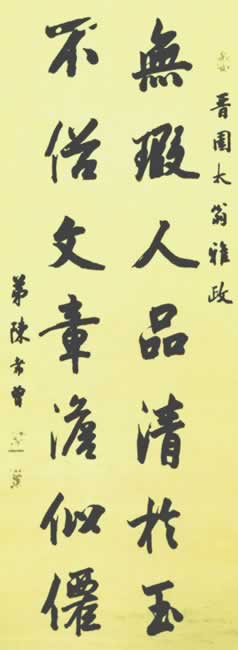 晉園太翁雅政
無瑕人品清於玉
不俗文章澹似僊
弟陳希曾